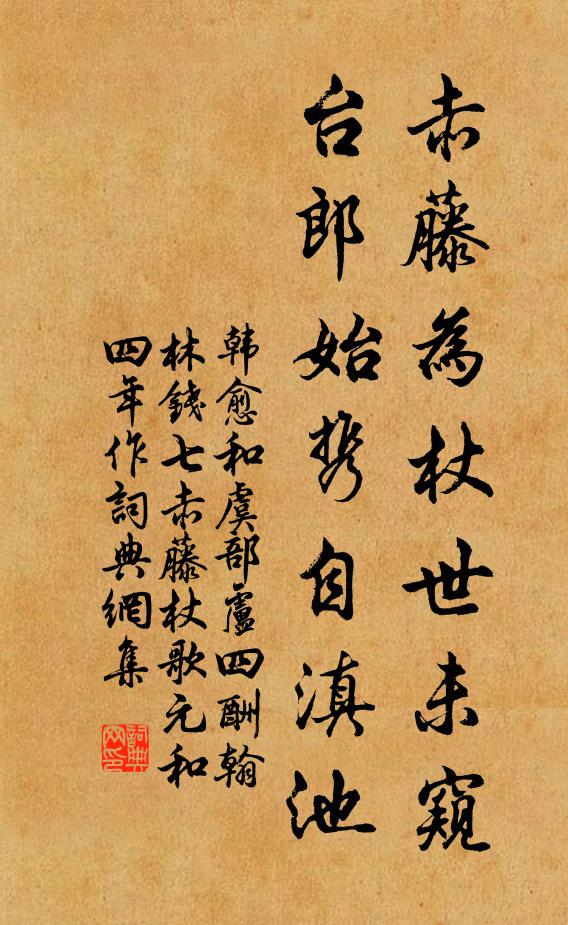 赤藤為杖世未窺
台郎始携自滇池
韩愈和虞部盧四酬翰
林錢七赤藤杖歌元和
四年作詞典網集
詞典網印